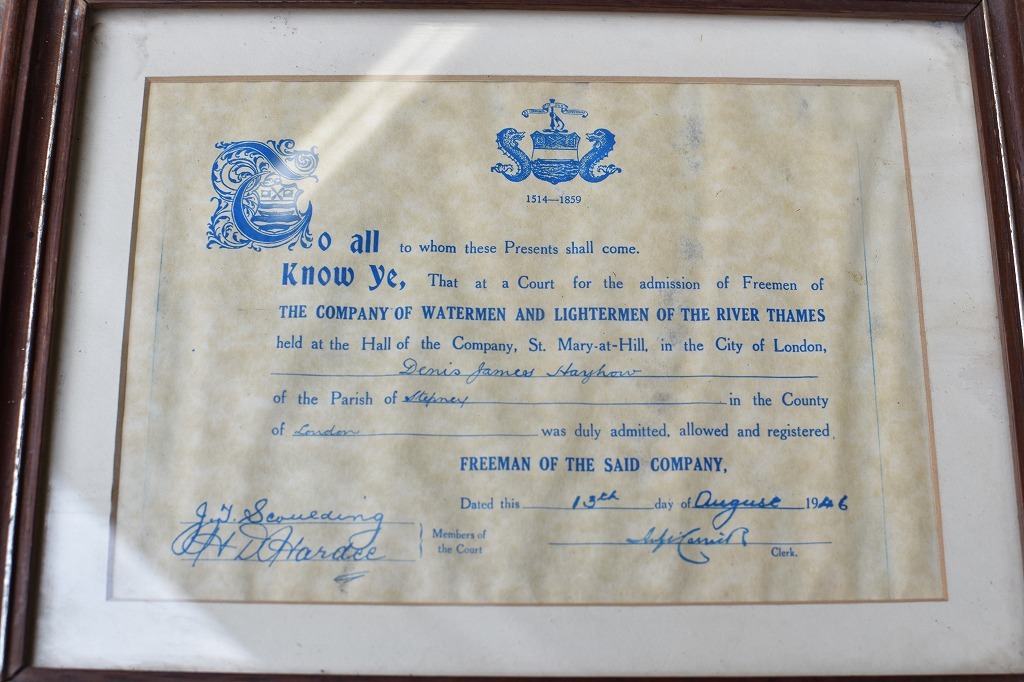 1514—1859
To all to whom these Presents shall come.
Know Ye, That at a Court for the admission of Freemen of
THE COMPANY OF WATERMEN AND LIGHTERMEN OF THE RIVER THAMES
held at the Hall of the Company, St. Mary-at-Hill, in the City of London,
Denis James Hayhow
of the Parish of Stepney in the County
of London was duly admitted, allowed and registered
FREEMAN OF THE SAID COMPANY,
Dated this 13th day of August 1946
J. T. Scoulding
Members of
the Court
Clerk.